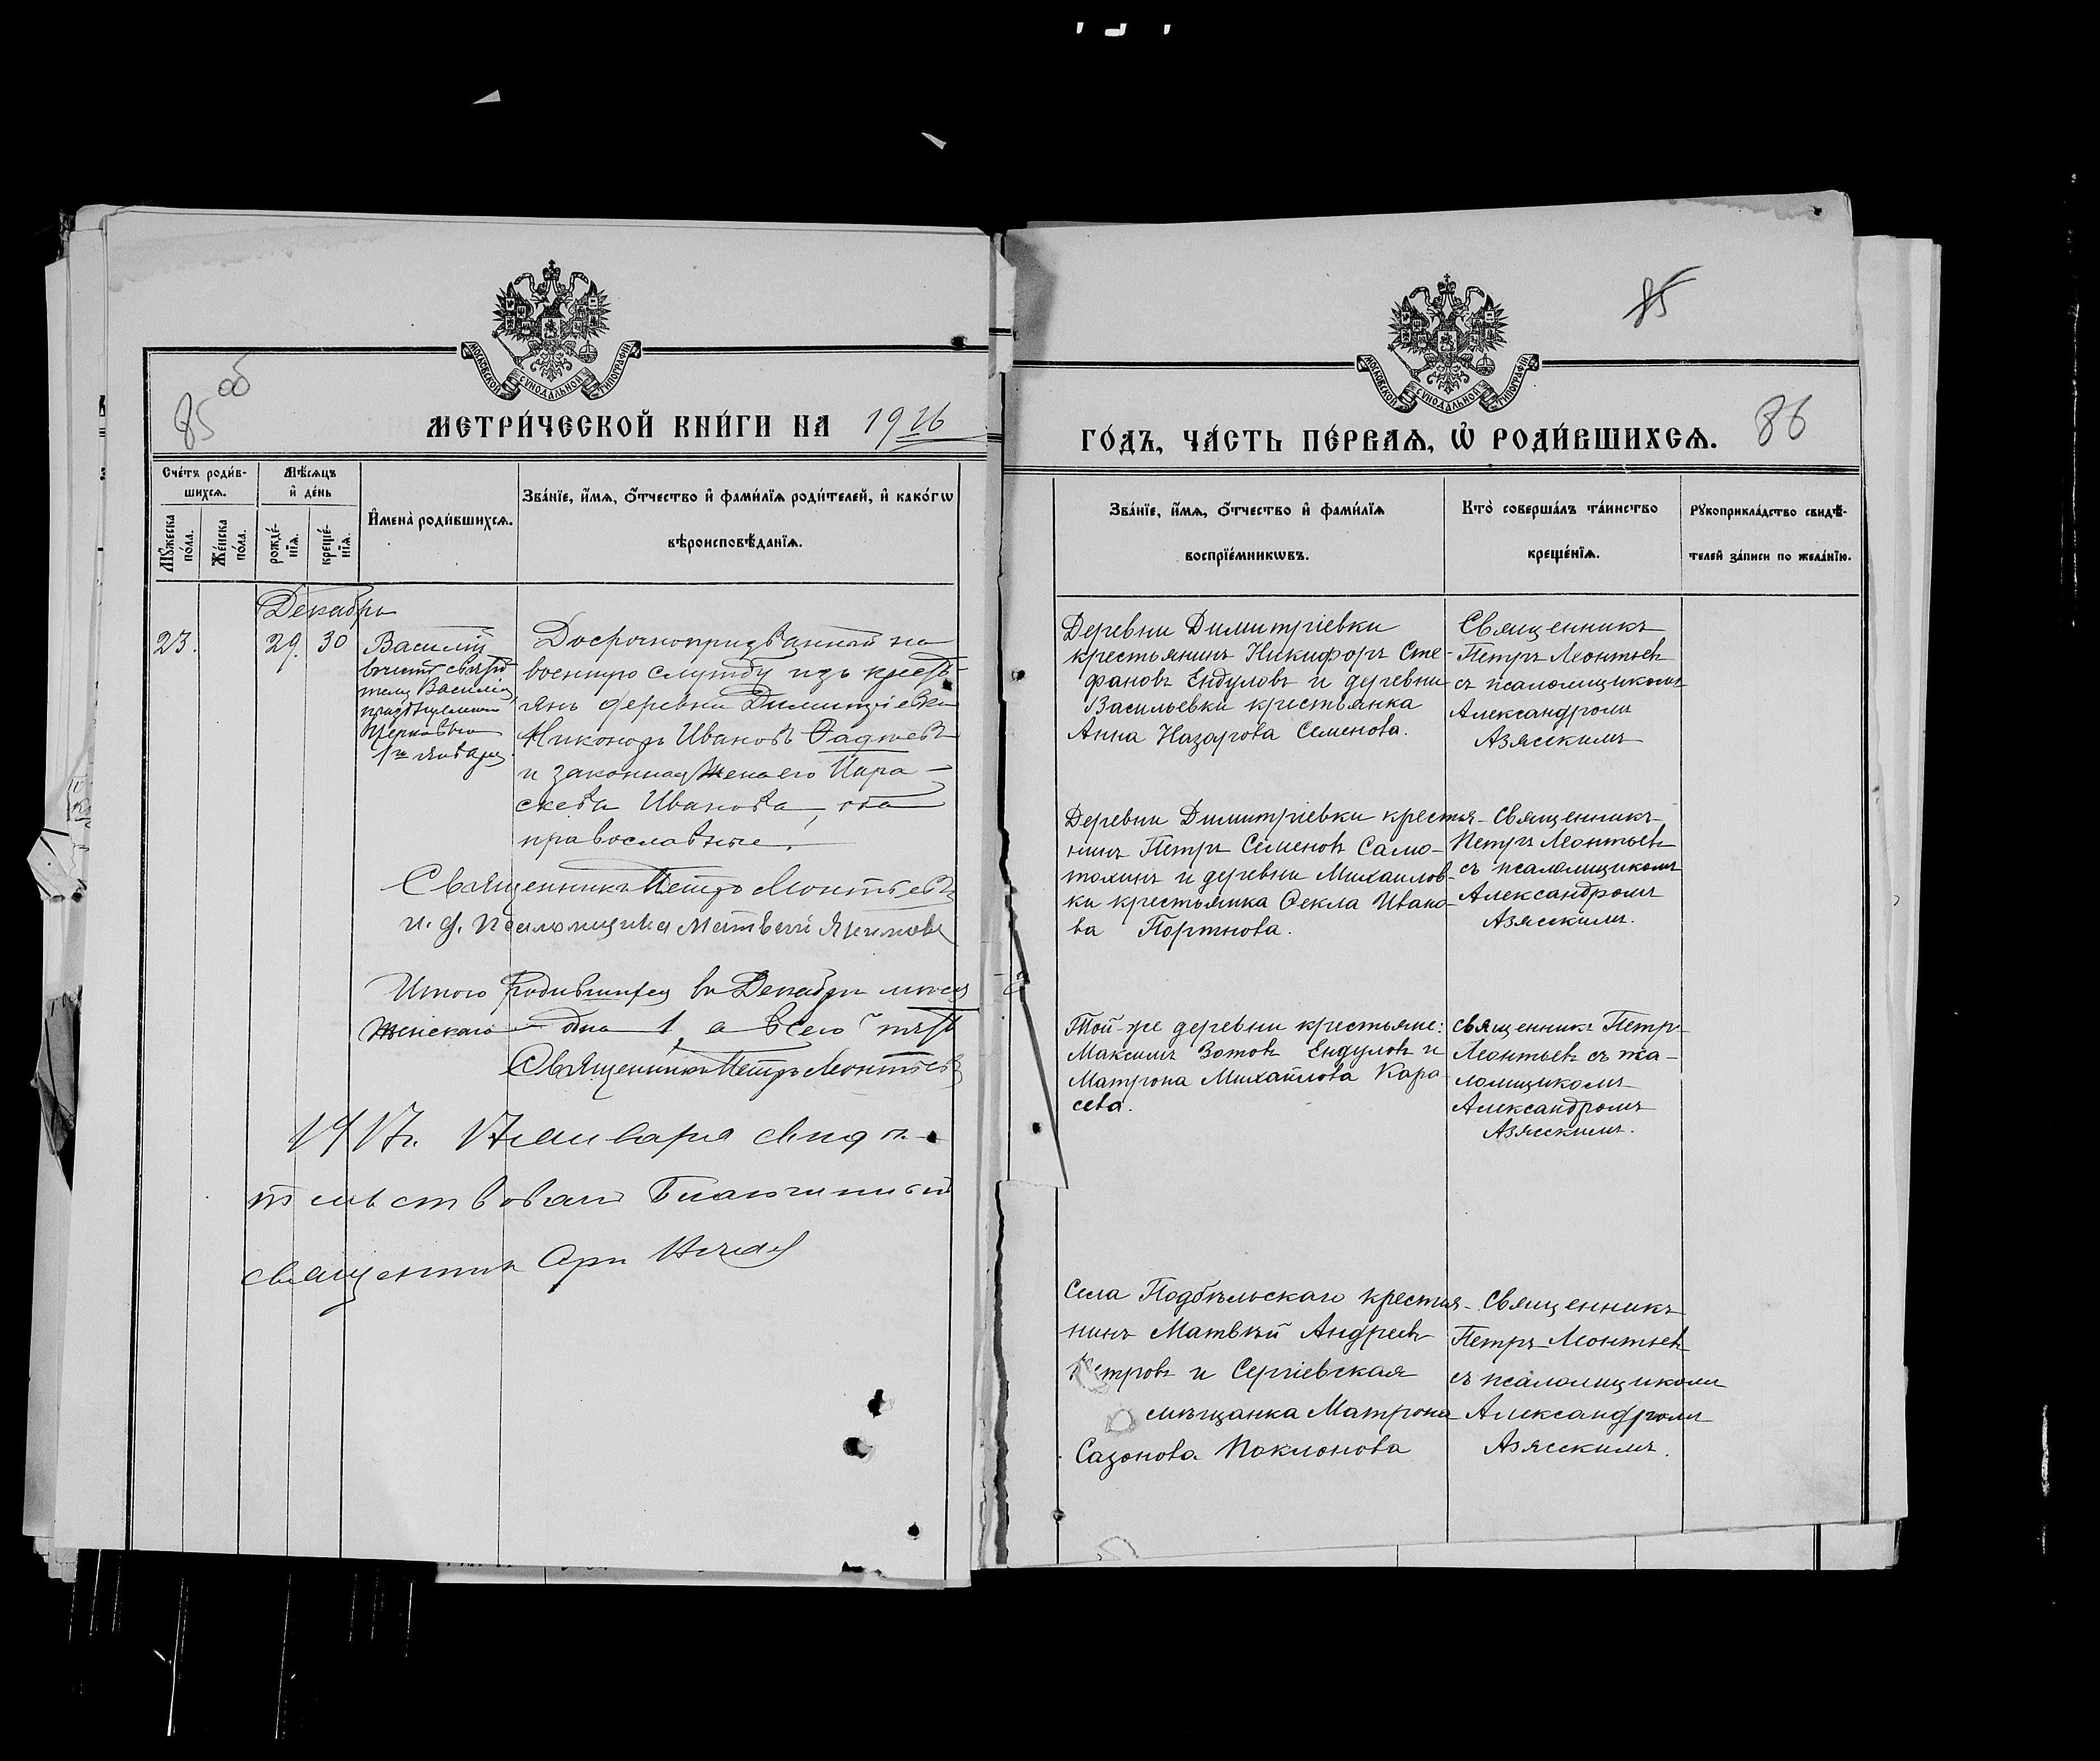 85 об
МОСКОВСКОЙ СУНОДАЛЬНОЙ ТИПОГРАФІИ
МЕТРИ́ЧЕСКОЙ КНИ́ГИ НА 1916
Сче́тъ роди́в-
шихсѧ.
Мѣ́сѧцъ
и҆ де́нь
Мꙋ́жеска
по́ла.
Же́нска
по́ла.
рожде́-
нїѧ.
креще́-
нїѧ.
И҆мена̀ роди́вшихсѧ.
Зва́нїе, и҆́мѧ, ѻ҆́тчество и҆ фами́лїѧ роди́телей, и҆ како́гѡ
вѣроисповѣ́данїѧ.
Декабрь
23. 29. 30
Василій
въ честь святи-
теля Василія
празднуемаго
Церковью
1го января
Досрочнопризванный на
военную службу изъ кресть-
янъ деревни Димитріевки
Никоноръ Ивановъ Фадѣевъ
и законная жена его Пара-
скева Иванова, оба
православные.
Священникъ Петръ Леонтьевъ
и. д. псаломщика Матвей
Итого родившихся въ Декабрѣ месяц
женскаго – одна 1, а всего
Священникъ Петръ Леонтьевъ
1917 г. 17 января свидѣ-
тельствовалъ Благочинный
священник
85
МОСКОВСКОЙ СУНОДАЛЬНОЙ ТИПОГРАФІИ
ГО́ДЪ, ЧА́СТЬ ПЕ́РВАѦ, Ѡ҆ РОДИ́ВШИХСѦ. 86
Зва́нїе, и҆́мѧ, ѻ҆́тчество и҆ фами́лїѧ
воспрїе́мникѡвъ.
Кто̀ соверша́лъ та́инство
креще́нїѧ.
Рꙋкоприкла́дство свидѣ́-
телей за́писи по жела́нїю.
Деревни Димитріевки
крестьянинъ Никифоръ Сте-
фановъ Ендуловъ и деревни
Васильевки крестьянка
Анна Назарова Семенова.
Священникъ
Петръ Леонтьевъ
съ псаломщикомъ
Александромъ
Азясскимъ
Деревни Димитріевки крестья-
нинъ Петръ Семеновъ Само-
тохинъ и деревни Михайлов-
ки крестьянка Фекла Ивано-
ва Портнова.
Священникъ
Петръ Леонтьевъ
съ псаломщикомъ
Александромъ
Азясскимъ.
Той-же деревни крестьяне:
Максимъ Зотовъ Ендуловъ и
Матрона Михайлова Кара
сева.
священникъ Петръ
Леонтьевъ съ пса-
ломщикомъ
Александромъ
Азясскимъ.
Села Подбѣльскаго крестья-
нинъ Матвѣй Андреевъ
Петровъ и Сергіевская
мѣщанка Матрона
Сазонова Поклонова
Священникъ
Петръ Леонтьевъ
съ псаломщикомъ
Александромъ
Азясскимъ.